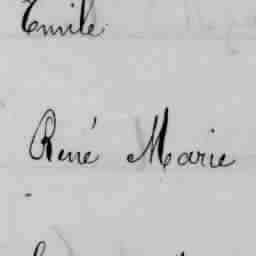 Emile
René Marie